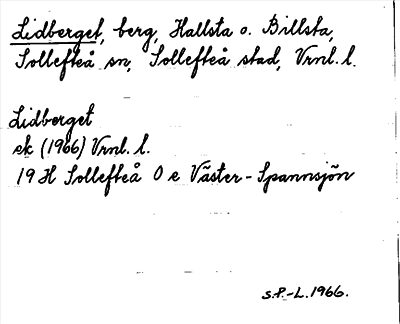 Lidberget, berg, Hallsta o. Billsta,
Sollefteå sn, Sollefteå stad, Vrnl. l.
Lidberget
ek (1966) Vrnl. l.
19 H Sollefteå O e Väster-Spannsjön
S.P.-L. 1966.